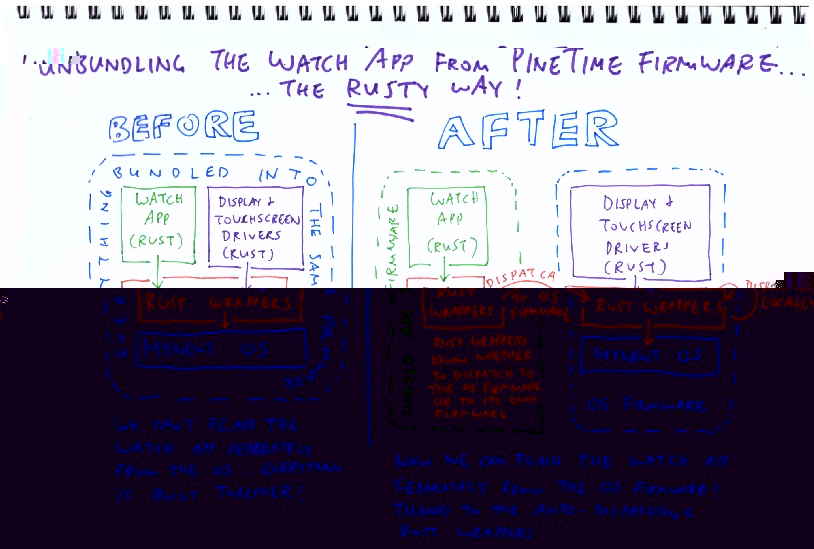 UNBUNDLING THE WATCH APP FROM PINETIME FIRMWARE...
... THE RUSTY WAY!
BEFORE
BUNDLED INTO
THE SAM
WATCH
APP
(RUST)
DISPLAY &
TOUCHSCREEN
DRIVERS
(RUST)
RUST WRAPPERS
MYNEWT OS
WE CAN'T FLASH THE
WATCH APP SEPARATELY
FROM THE OS. EVERYTHING
IS BUILT TOGETHER!
AFTER
FIRMWARE
WATCH
APP
(RUST)
RUST
WRAPPERS
DISPATCH
TO OS
FIRMWARE
RUST WRAPPERS
KNOW WHETHER
TO DISPATCH TO
THE OS FIRMWARE
OR TO ITS OWN
FIRMWARE
DISPLAY &
TOUCHSCREEN
DRIVERS
(RUST)
RUST WRAPPERS
LOCALLY
MYNEWT OS
OS FIRMWARE
NOW WE CAN FLASH THE WATCH APP
SEPARATELY FROM THE OS FIRMWARE!
THANKS TO THE AUTO-DISPATCHING
RUST WRAPPERS